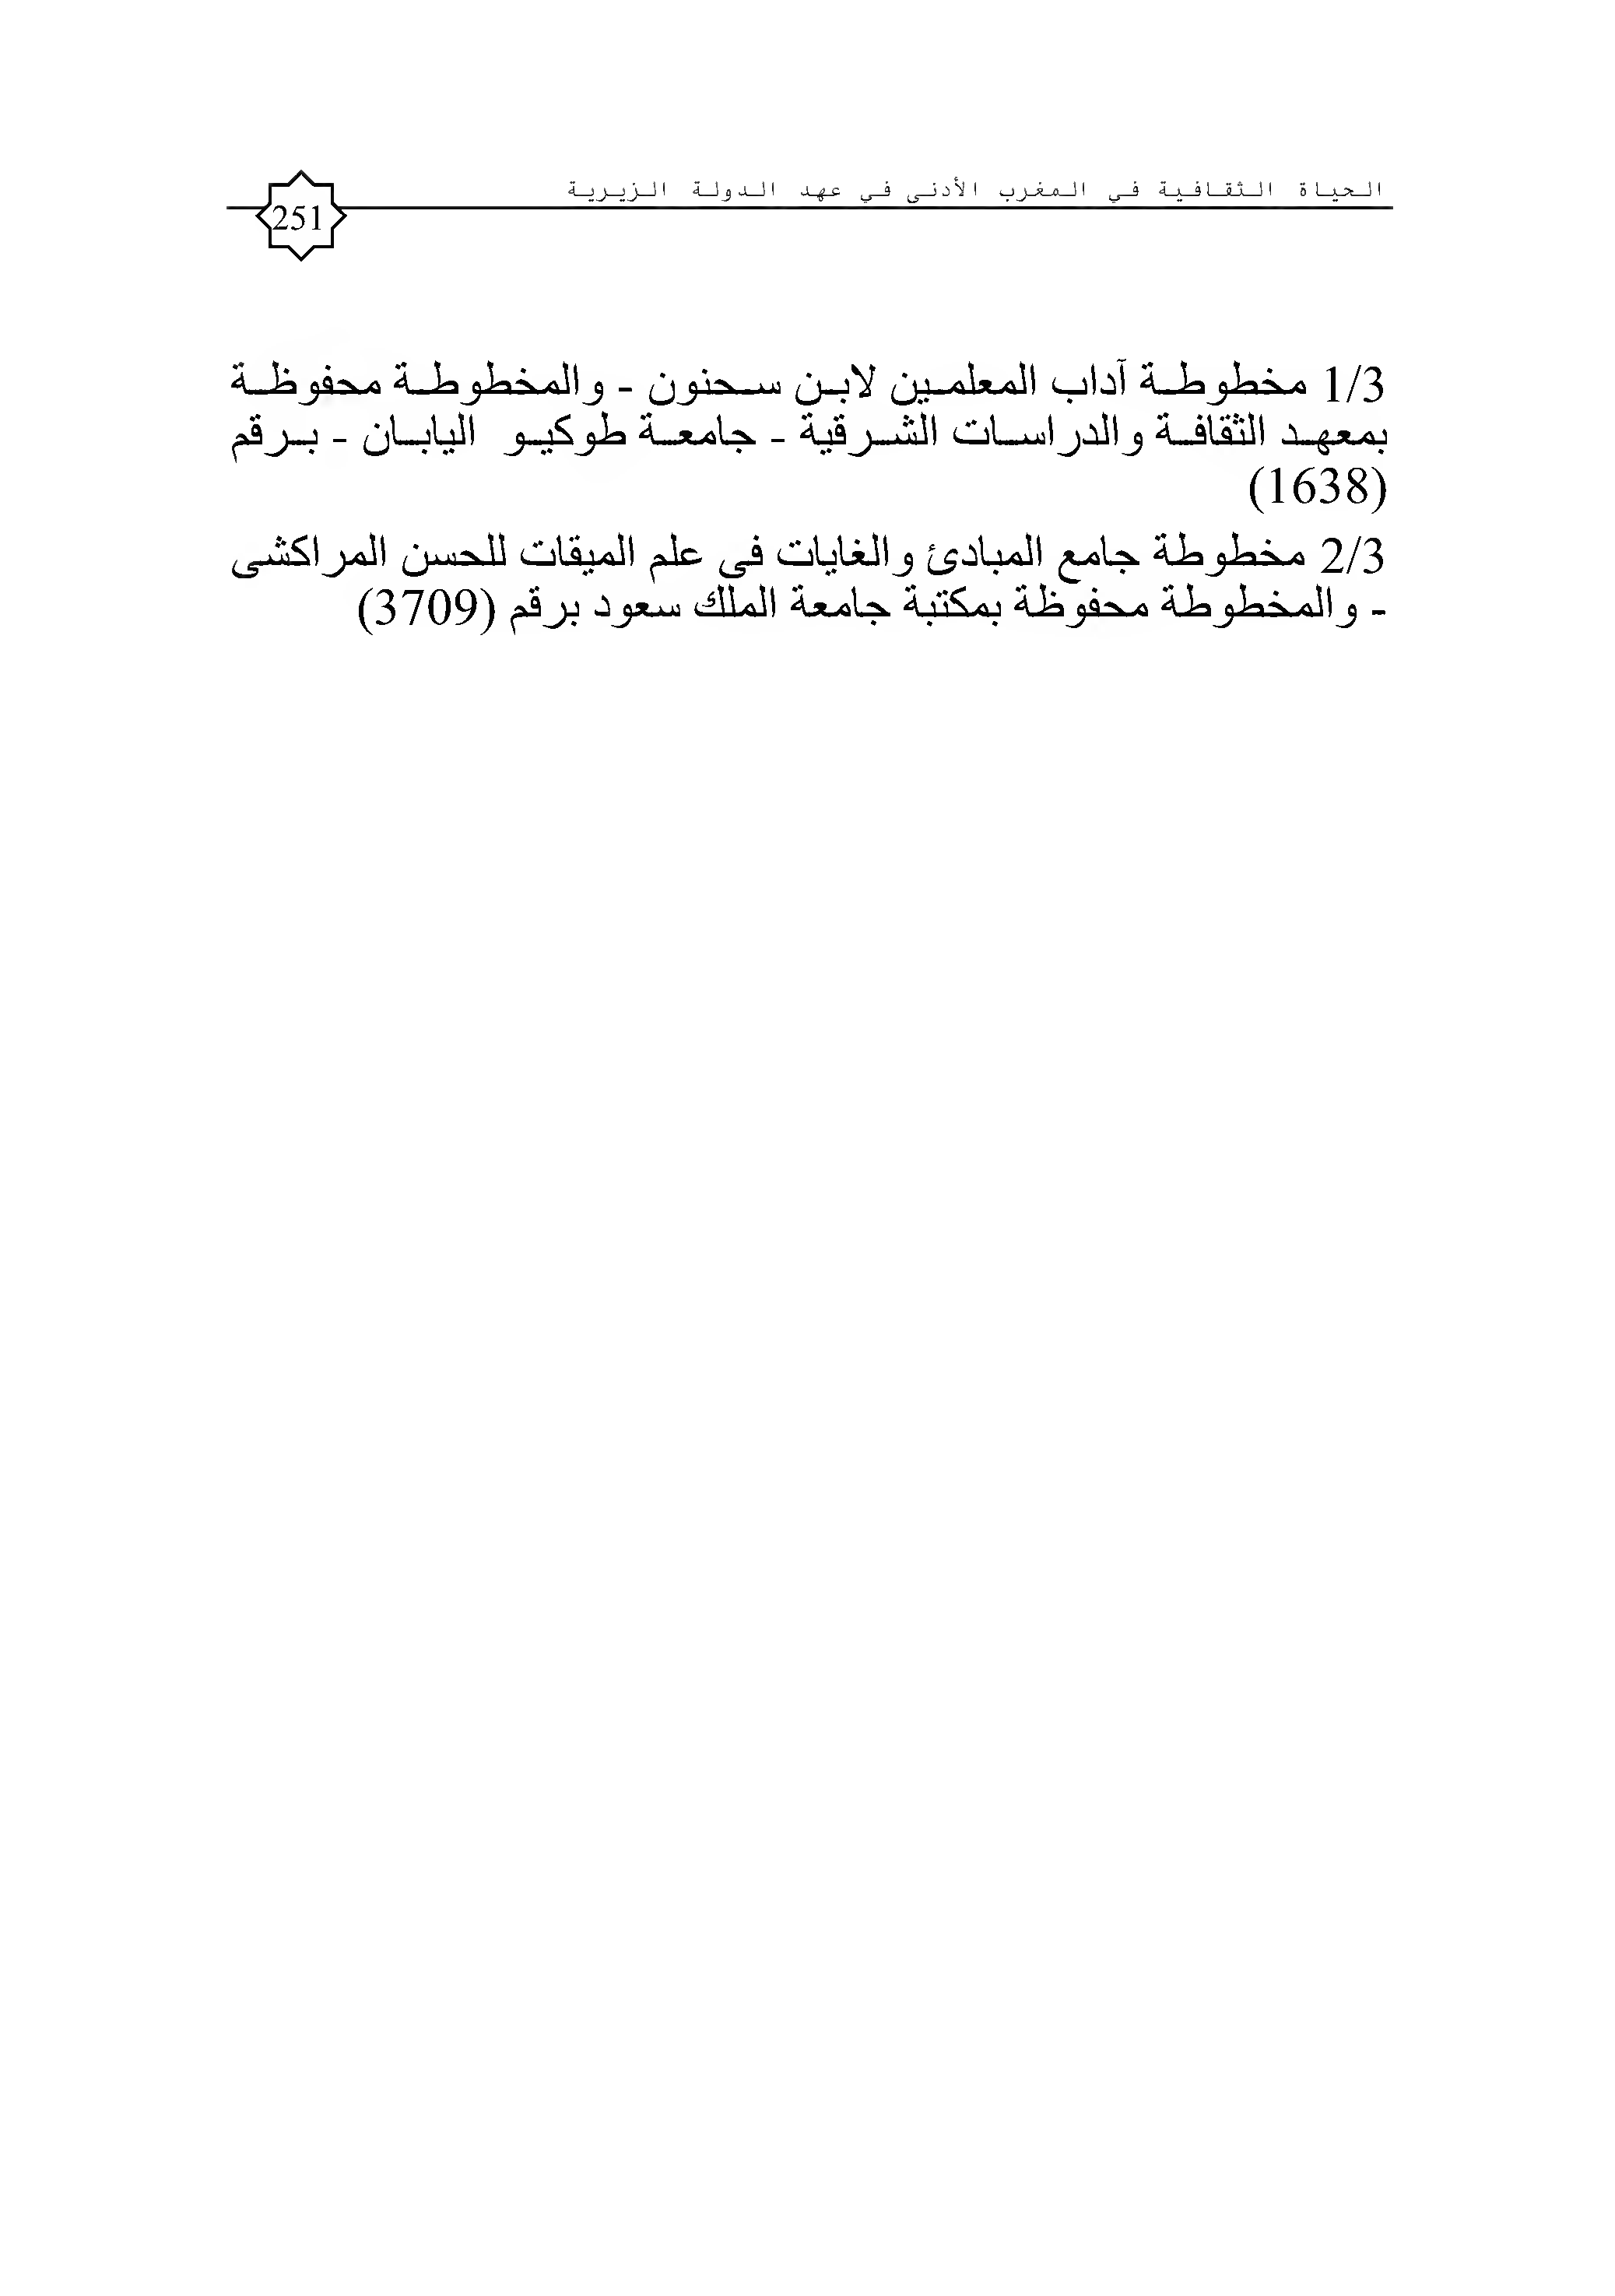 الحياة الثقافية في المغرب الأدنى في عهد الدولة الزيرية
251
1/3 مخطوطة آداب المعلمين لابن سحنون - والمخطوطة محفوظة
بمعهد الثقافة والدراسات الشرقية - جامعة طوكيو اليابان - برقم
(1638)
2/3 مخطوطة جامع المبادئ والغايات فى علم الميقات للحسن المراكشى
- والمخطوطة محفوظة بمكتبة جامعة الملك سعود برقم (3709)